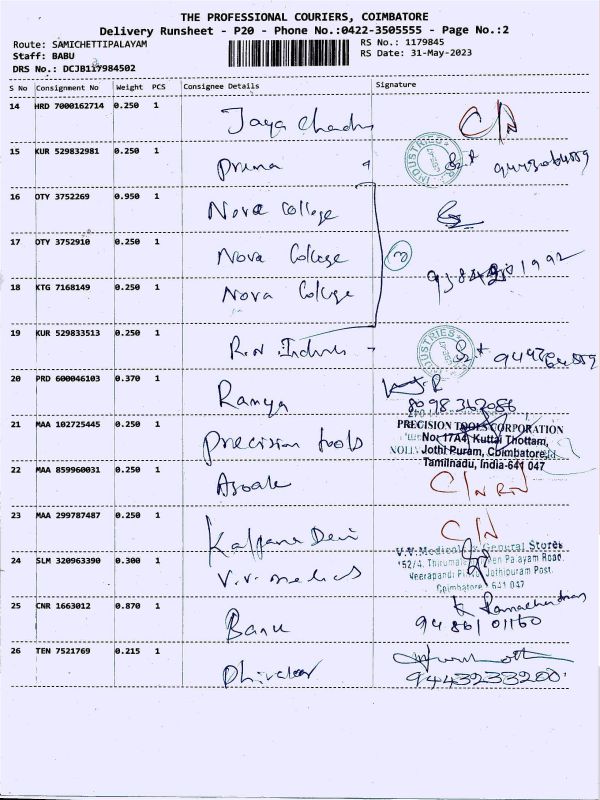 THE PROFESSIONAL COURIERS, COIMBATORE
Delivery Runsheet - P20 - Phone No.:0422-3505555 - Page No.:2
Route: SAMICHETTIPALAYAM
RS No.: 1179845
Staff: BABU
RS Date: 31-May-2023
DRS No.: DCJB117984502
S No Consignment No Weight PCS Consignee Details Signature
14 HRD 7000162714 0.250 1 Jaya Chandra C/N
15 KUR 529832981 0.250 1 Prema
16 OTY 3752269 0.950 1 Nova College
17 OTY 3752910 0.250 1 Nova College 3
18 KTG 7168149 0.250 1 Nova College
19 KUR 529833513 0.250 1 R.N. Indus
INDUSTRIES
20 PRD 600046103 0.370 1 Ramya
8098 362086
21 MAA 102725445 0.250 1 Precision tools
PRECISION TOOLS CORPORATION
No: 17A4, Kuttai Thottam,
Jothi Puram, Coimbatore
Tamilnadu, India-641 047
22 MAA 859960031 0.250 1 Asoak C/N RN
23 MAA 299787487 0.250 1 Kalpana Devi C/N
24 SLM 320963390 0.300 1 V.V. Medicals
V.V. Medical General Stores
Jothipuram Post.
Coimbatore - 641 047
25 CNR 1663012 0.870 1 Banu K Ramachandran
94861 01160
26 TEN 7521769 0.215 1 Dhivakar
9443233200